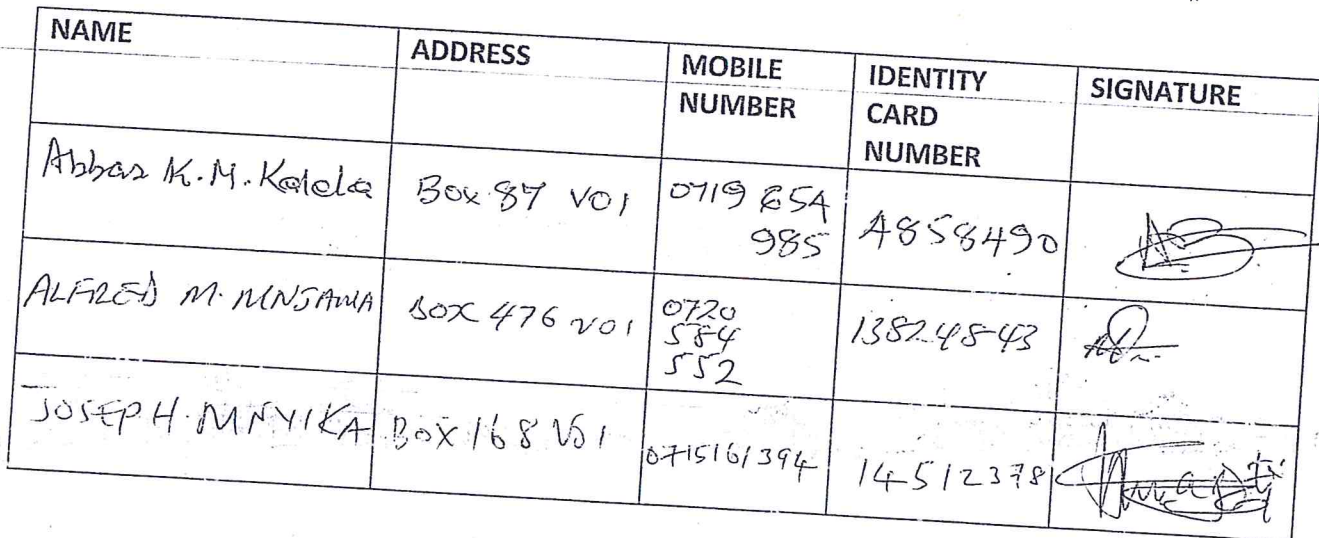 NAME
ADDRESS
MOBILE
NUMBER
IDENTITY
CARD
NUMBER
SIGNATURE
Abbas K. M. Kalela
Box 87 VOI
0719 654
985
A858490
ALFRED M. MNJAMA
BOX 476 VOI
0720
584
552
13824843
JOSEPH. MNYIKA
BOX 168 VOI
0715161394
14512378